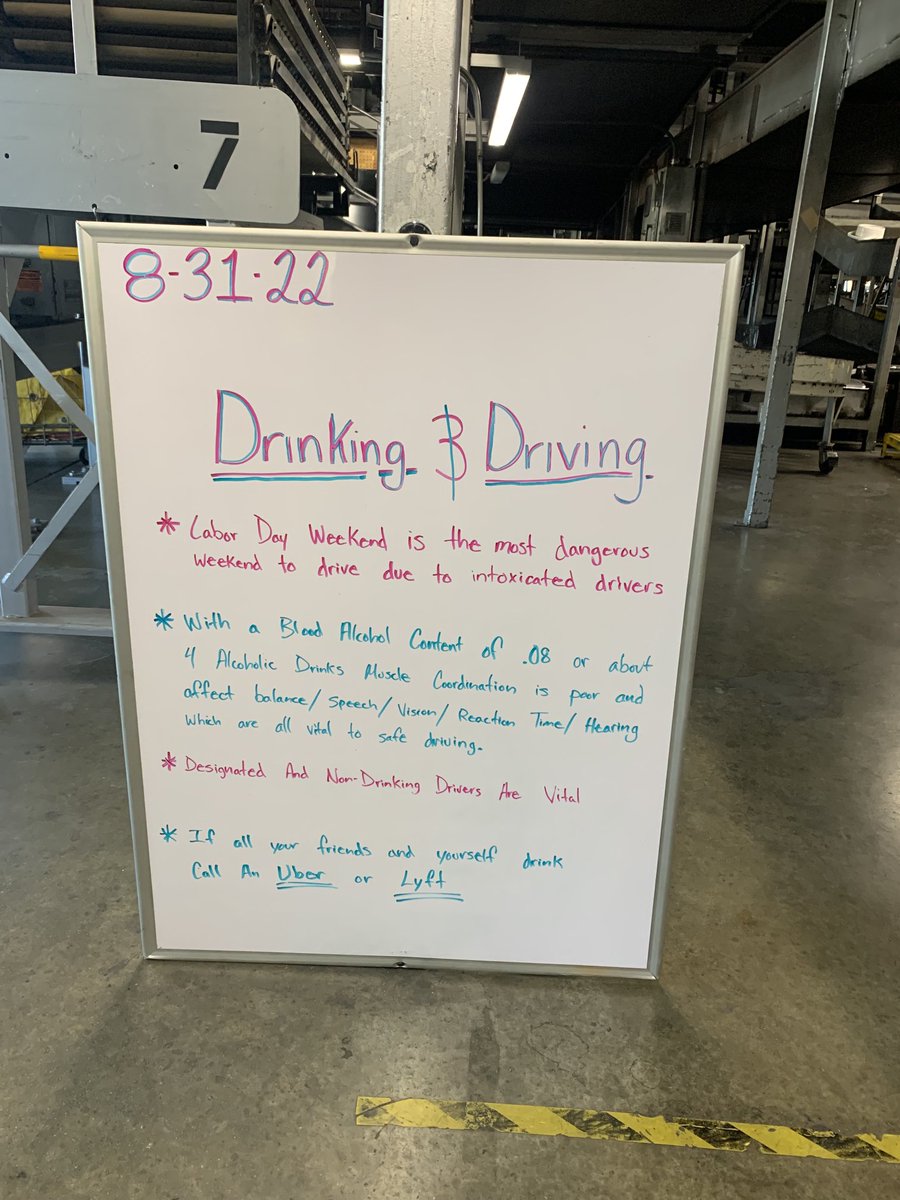 7
8-31-22
Drinking & Driving
* Labor Day Weekend is the most dangerous
weekend to drive due to intoxicated drivers
* With a Blood Alcohol Content of .08 or about
4 Alcoholic Drinks Muscle Coordination is poor and
affect balance/Speech/Vision/Reaction Time/Hearing
which are all vital to safe driving.
* Designated And Non-Drinking Drivers Are Vital
* If all your friends and yourself drink
Call An Uber or Lyft